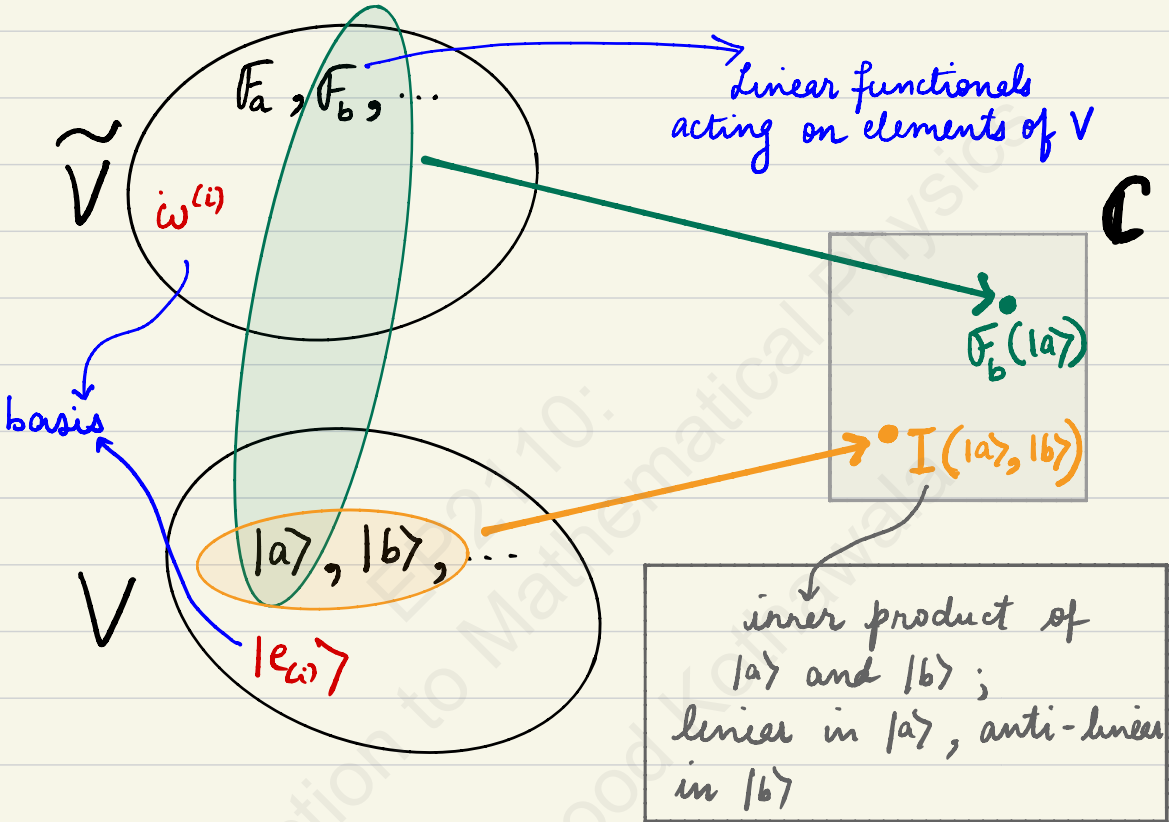 𝔽ₐ, 𝔽_b, ...
Linear functionals
acting on elements of V
Ṽ
ω⁽ⁱ⁾
ℂ
𝔽_b(|a⟩)
basis
I(|a⟩, |b⟩)
|a⟩, |b⟩, ...
V
|e₍ᵢ₎⟩
inner product of
|a⟩ and |b⟩ ;
linear in |a⟩, anti-linear
in |b⟩
EP2110:
tion to Mathematical Physics
ood Kothawala